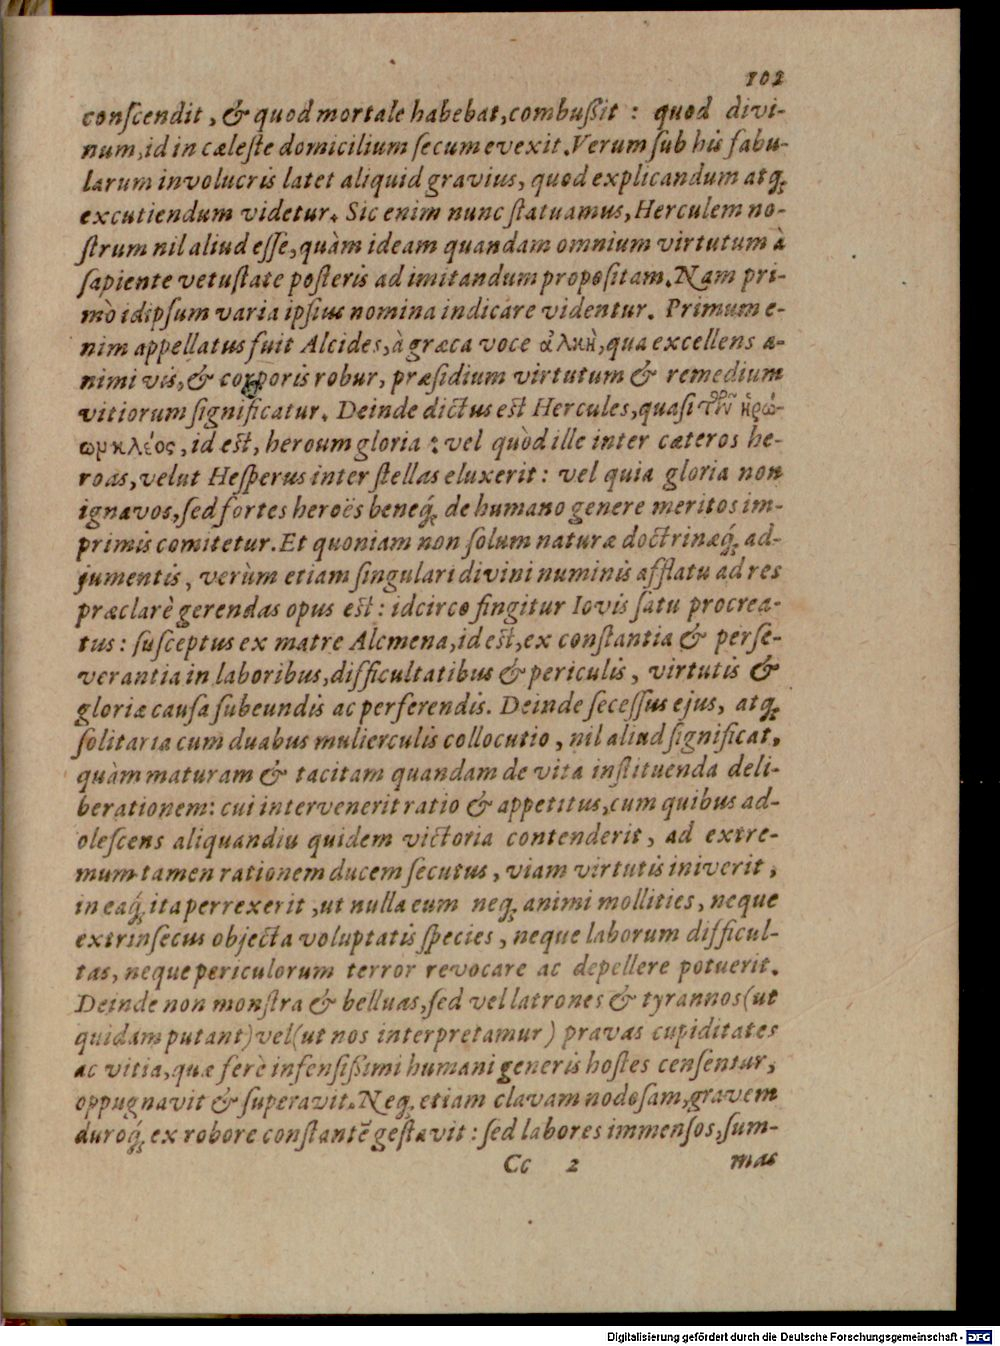 102
conſcendit, & quod mortale habebat, combuſſit: quod divi-
num, id in cæleſte domicilium ſecum evexit. Verum ſub his fabu-
larum involucris latet aliquid gravius, quod explicandum atq́;
excutiendum videtur. Sic enim nunc ſtatuamus, Herculem no-
ſtrum nil aliud eſſe, quàm ideam quandam omnium virtutum à
ſapiente vetuſtate poſteris ad imitandum propoſitam. Nam pri-
mò idipſum varia ipſius nomina indicare videntur. Primum e-
nim appellatus fuit Alcides, à græca voce ἀλκὴ, qua excellens a-
nimi vis, & corporis robur, præſidium virtutum & remedium
vitiorum ſignificatur. Deinde dictus est Hercules, quaſi τῶν ἡρώ-
ωμ κλέος, id est, heroum gloria: vel quòd ille inter cæteros he-
roas, velut Heſperus inter ſtellas eluxerit: vel quia gloria non
ignavos, ſed fortes heroës beneq́; de humano genere meritos im-
primis comitetur. Et quoniam non ſolum naturæ doctrinæq́; ad-
jumentis, verùm etiam ſingulari divini numinis afflatu ad res
præclarè gerendas opus est: idcirco fingitur Iovis ſatu procrea-
tus: ſuſceptus ex matre Alcmena, id est, ex conſtantia & perſe-
verantia in laboribus, difficultatibus & periculis, virtutis &
gloriæ cauſa ſubeundis ac perferendis. Deinde ſeceſſus ejus, atq́;
ſolitaria cum duabus mulierculis collocutio, nil aliud ſignificat,
quàm maturam & tacitam quandam de vita inſtituenda deli-
berationem: cui intervenerit ratio & appetitus, cum quibus ad-
oleſcens aliquandiu quidem victoria contenderit, ad extre-
mum tamen rationem ducem ſecutus, viam virtutis iniverit,
in eaq́; ita perrexerit, ut nulla eum neq́; animi mollities, neque
extrinſecus objecta voluptatis ſpecies, neque laborum difficul-
tas, neque periculorum terror revocare ac depellere potuerit.
Deinde non monſtra & belluas, ſed vel latrones & tyrannos (ut
quidam putant) vel (ut nos interpretamur) pravas cupiditates
ac vitia, quæ ferè infenſiſſimi humani generis hoſtes cenſentur,
oppugnavit & ſuperavit. Neq́; etiam clavam nodoſam, gravem
duroq́; ex robore conſtantē geſtavit: ſed labores immenſos, ſum-
Cc 2 mas
Digitalisierung gefördert durch die Deutsche Forschungsgemeinschaft - DFG